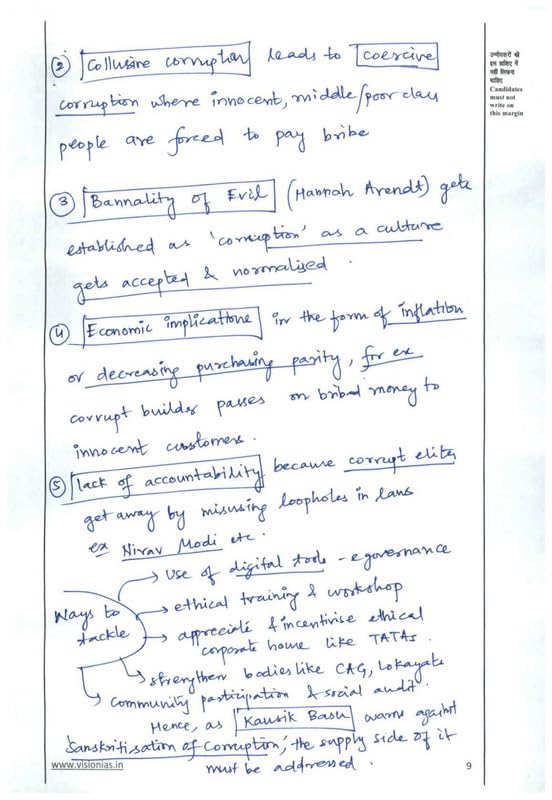 ② Collusive corruption leads to coercive
corruption where innocent, middle/poor class
people are forced to pay bribe
③ Bannality of Evil (Hannah Arendt) gets
established as 'corruption' as a culture
gets accepted & normalised.
④ Economic implications in the form of inflation
or decreasing purchasing parity, for ex
corrupt builder passes on bribed money to
innocent customers.
⑤ lack of accountability because corrupt elites
get away by misusing loopholes in laws
ex Nirav Modi etc.
Ways to
tackle
→ Use of digital tools - egovernance
→ ethical training & workshop
→ appreciate & incentivise ethical
corporate house like TATAs.
→ strengthen bodies like CAG, Lokayata
→ community participation & social audit.
Hence, as Kausik Basu warns against
'Sanskritisation of Corruption', the supply side of it
must be addressed.
उम्मीदवारों को
इस हाशिए में
नहीं लिखना
चाहिए
Candidates
must not
write on
this margin
www.visionias.in
9